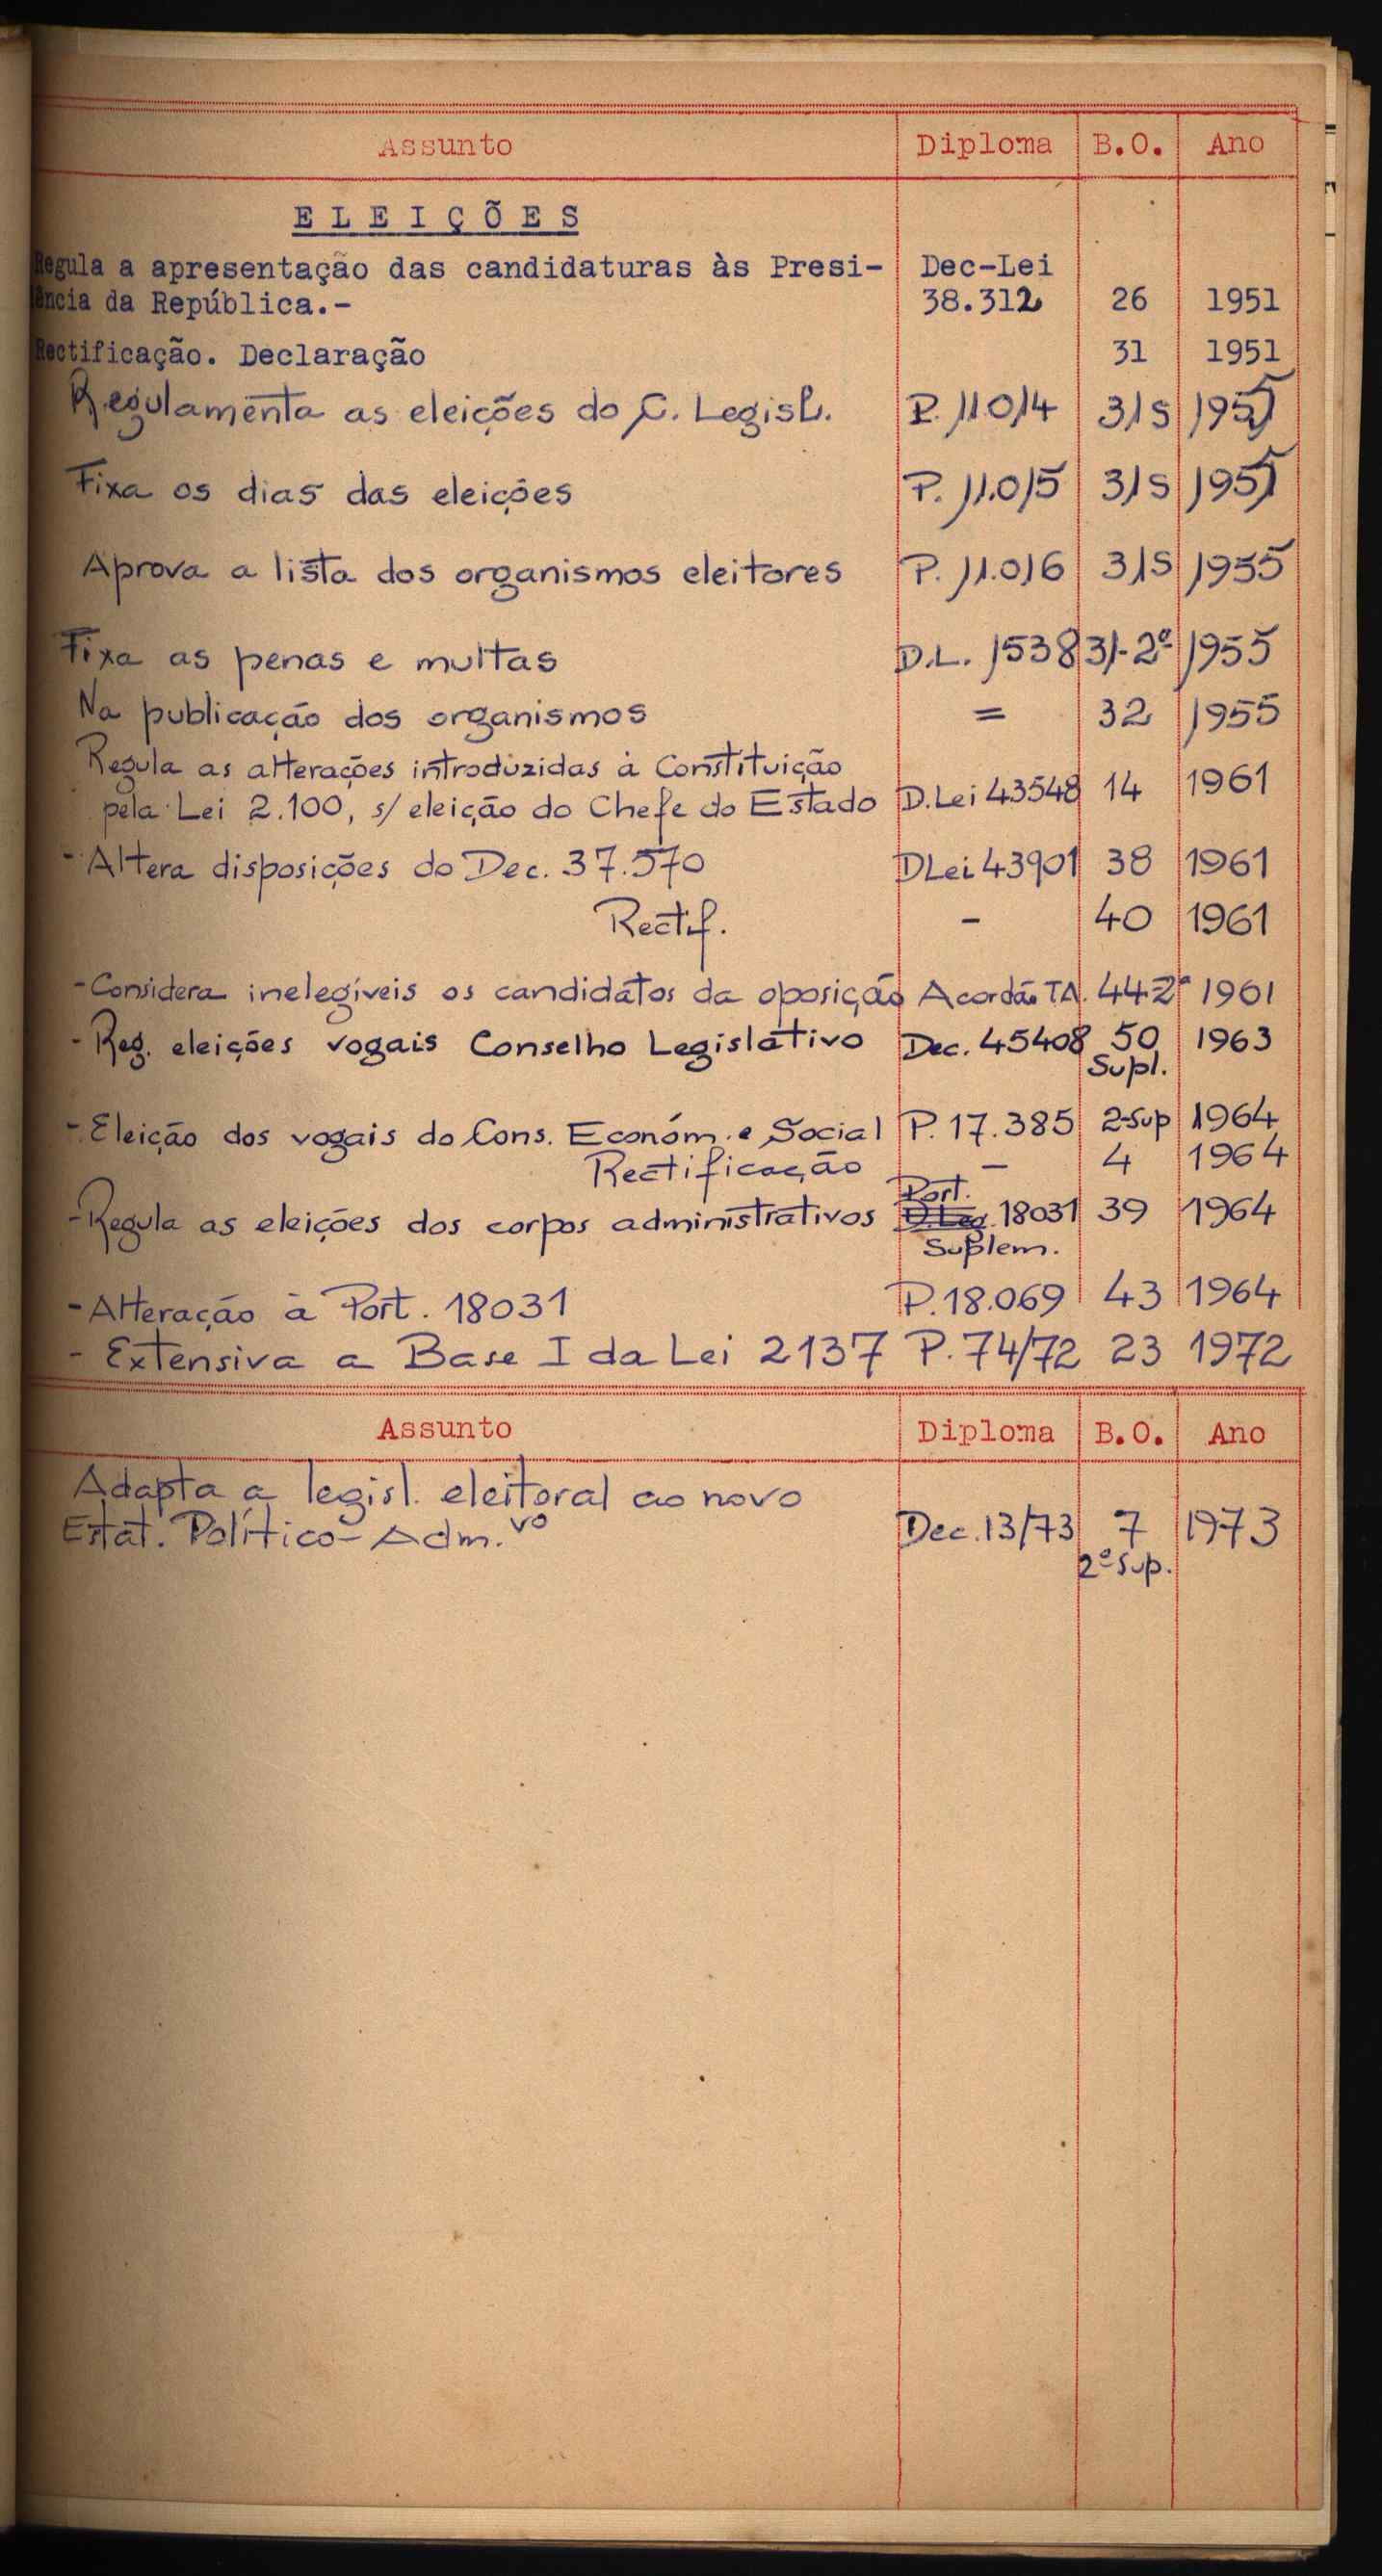 Assunto Diploma B.O. Ano
ELEIÇÕES
Regula a apresentação das candidaturas às Presi- Dec-Lei
ência da República.- 38.312 26 1951
Rectificação. Declaração 31 1951
Regulamenta as eleições do C. Legisl. P. 11.014 31S 1955
Fixa os dias das eleições P. 11.015 31S 1955
Aprova a lista dos organismos eleitores P. 11.016 31S 1955
Fixa as penas e multas D.L. 1538 31-2º 1955
Na publicação dos organismos = 32 1955
Regula as alterações introduzidas à Constituição
pela Lei 2.100, s/ eleição do Chefe do Estado D.Lei 43548 14 1961
- Altera disposições do Dec. 37.570 DLei 43901 38 1961
Rectif. - 40 1961
- Considera inelegíveis os candidatos da oposição Acordão TA. 44-2º 1961
- Reg. eleições vogais Conselho Legislativo Dec. 45408 50 1963
Supl.
- Eleição dos vogais do Cons. Económ. e Social P. 17.385 2-Sup 1964
Rectificação - 4 1964
Port.
- Regula as eleições dos corpos administrativos D.Leg. 18031 39 1964
Suplem.
- Alteração à Port. 18031 P.18.069 43 1964
- Extensiva a Base I da Lei 2137 P. 74/72 23 1972
Assunto Diploma B.O. Ano
Adapta a legisl. eleitoral ao novo
Estat. Político-Adm.vo Dec. 13/73 7 1973
2º Sup.